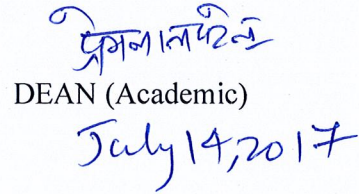 प्रेमलाल पटेल
DEAN (Academic)
July 14, 2017